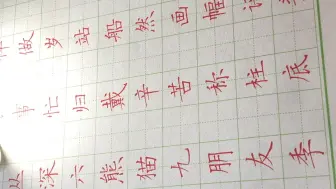 做岁站船然画幅
事忙归戴辛苦称柱底
深六熊猫九朋友季